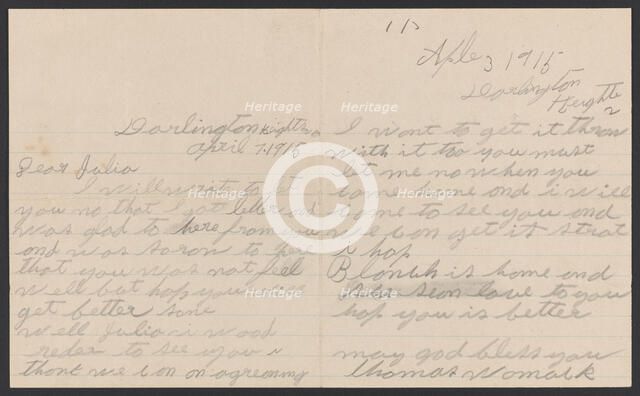 Darlington Heights va
April 7. 1915
Dear Julia
I will writ to let
you no that I got letter and
was glad to here from you
and was soron to hear
that you was not feel
well but hop you will
get better sone
well Julia i wood
reder to see you i
thont we con on agreaning
(1)
Aple 3 1915
Darlington
Heights
2
I wont to get it throw
with it too you must
let me no when you
come home and i will
come to see you and
we con get it strat
i hop
Blanch is home and
she seon love to you
hop you is better
may god bless you
thomas womack
Heritage
Heritage
Heritage
Heritage
Heritage
Heritage